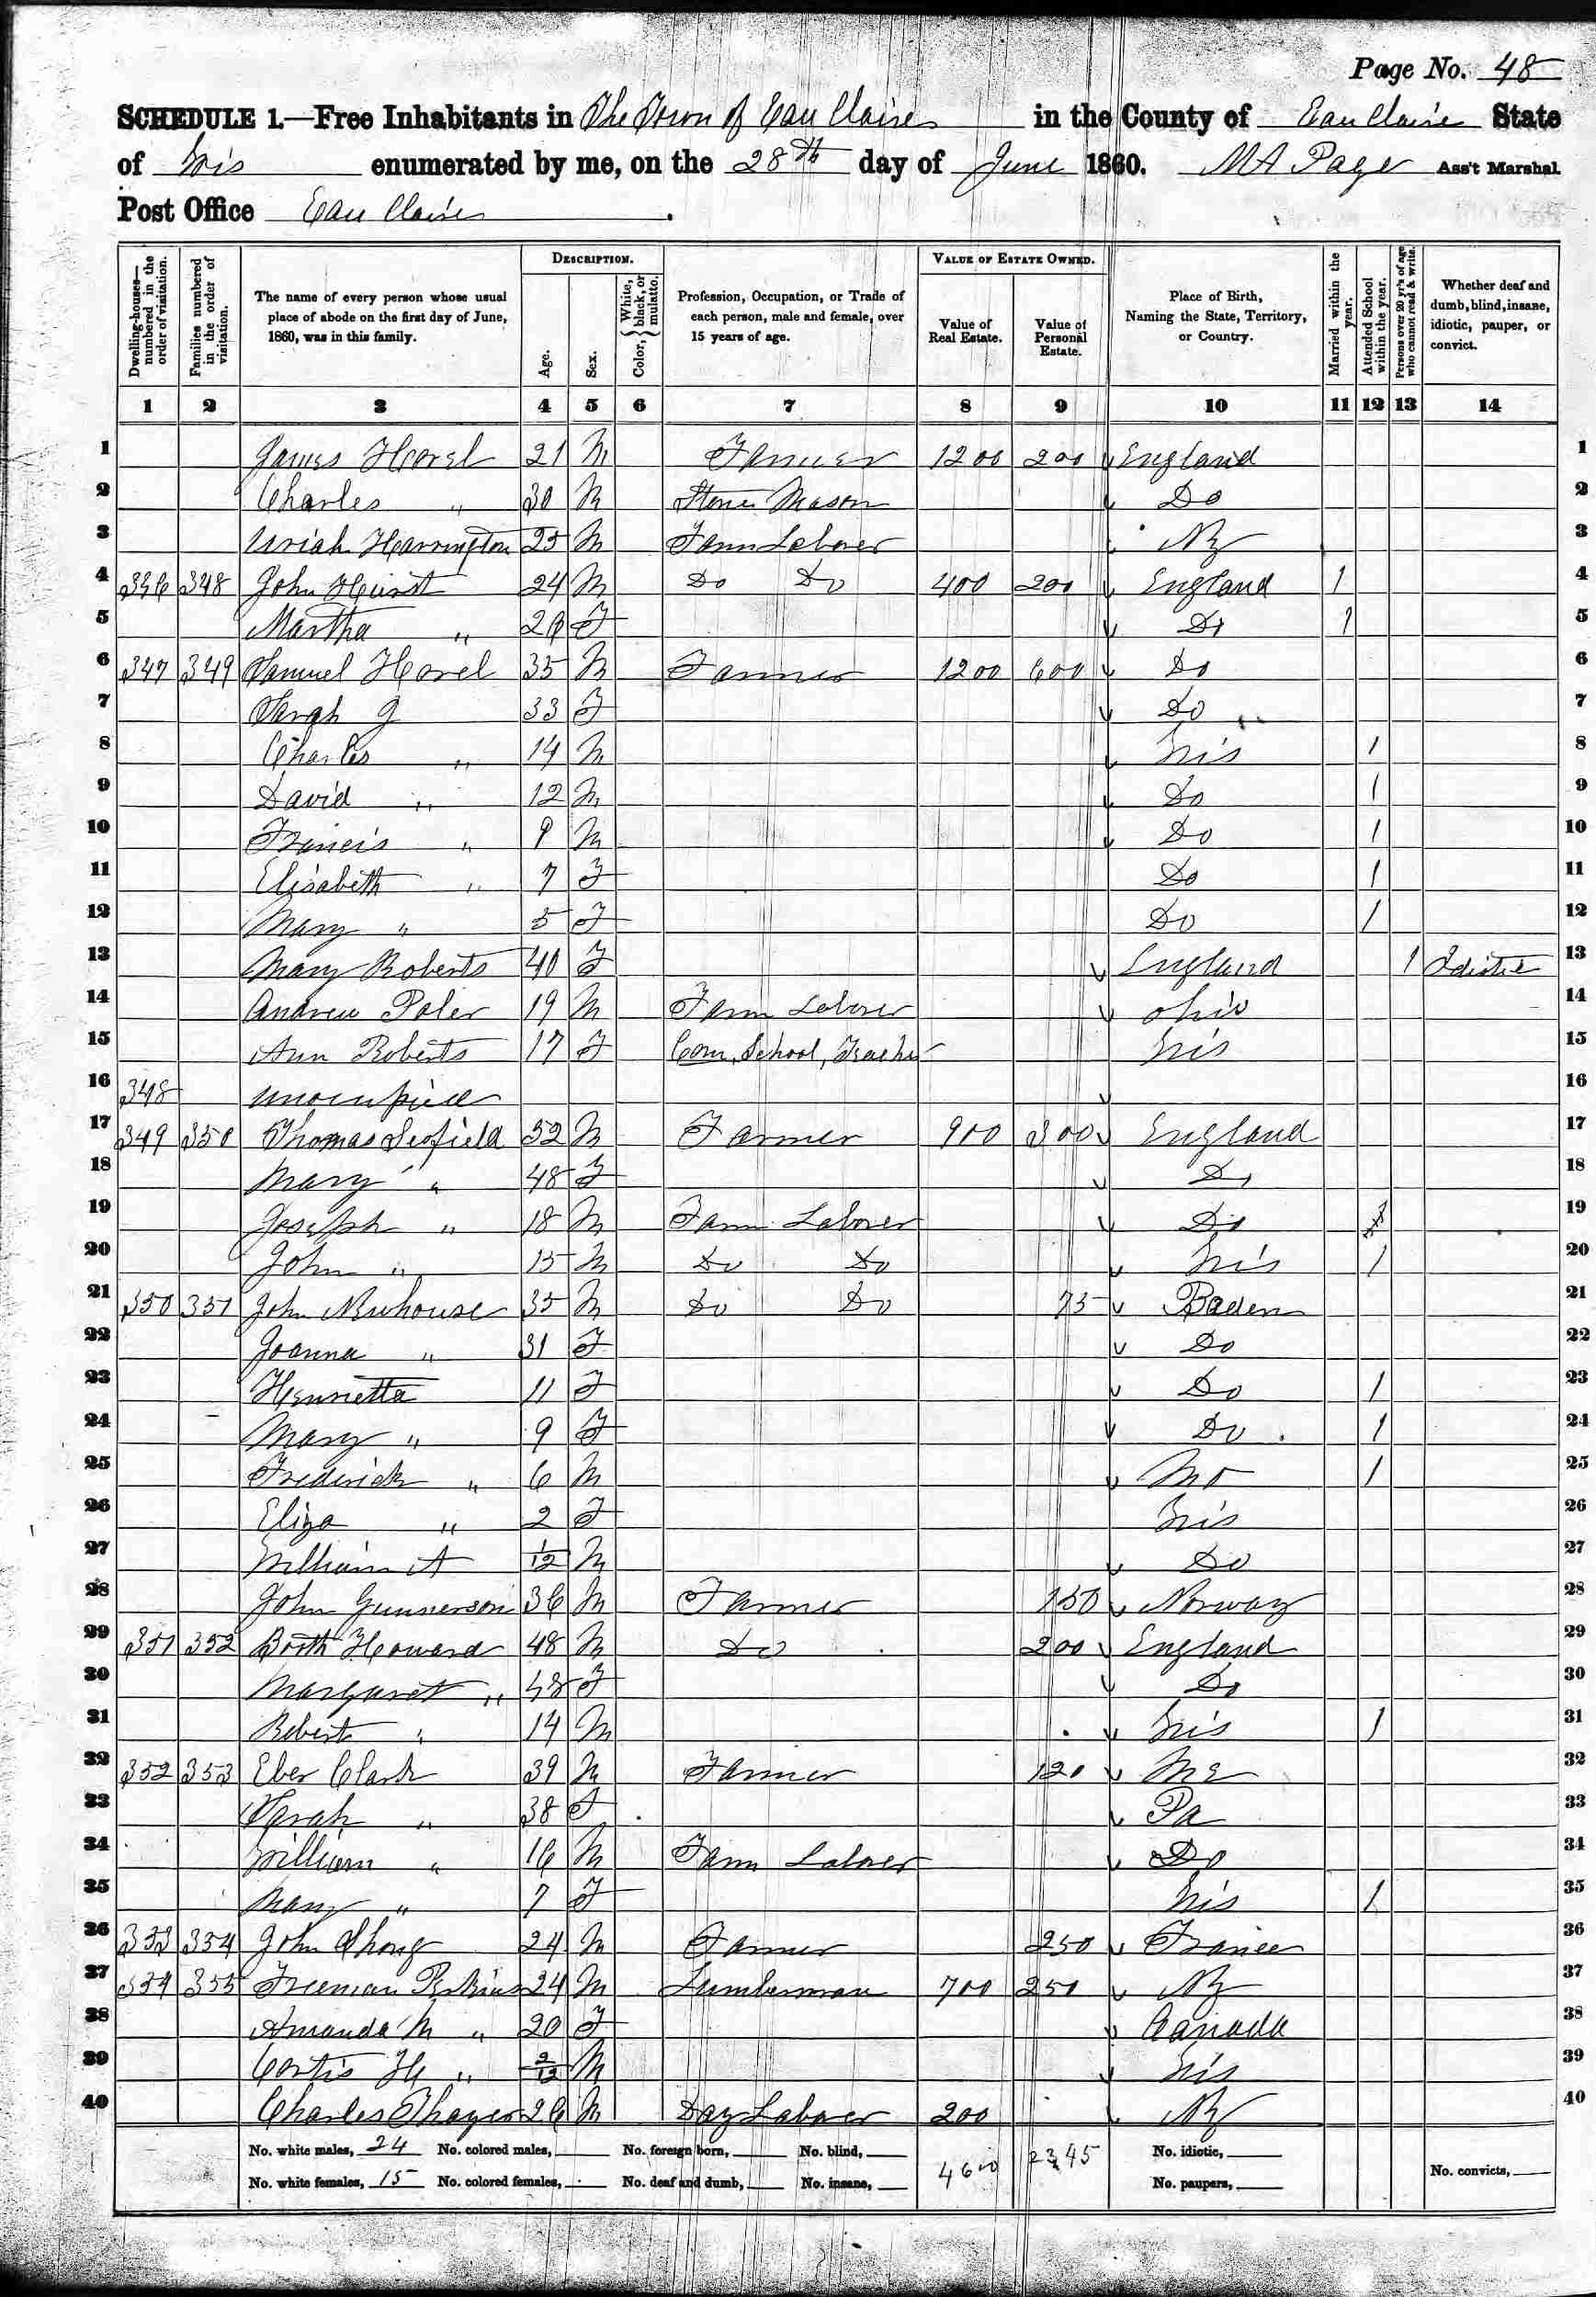 Page No. 48
SCHEDULE 1.—Free Inhabitants in The Town of Eau Claire in the County of Eau Claire State
of Wis enumerated by me, on the 28th day of June 1860. MA Page Ass't Marshal.
Post Office Eau Claire.
DESCRIPTION. VALUE OF ESTATE OWNED.
Dwelling-houses—numbered in the order of visitation. Families numbered in the order of visitation. The name of every person whose usual place of abode on the first day of June, 1860, was in this family. Age. Sex. Color, {White, black, or mulatto. Profession, Occupation, or Trade of each person, male and female, over 15 years of age. Value of Real Estate. Value of Personal Estate. Place of Birth, Naming the State, Territory, or Country. Married within the year. Attended School within the year. Persons over 20 y'rs of age who cannot read & write. Whether deaf and dumb, blind, insane, idiotic, pauper, or convict.
1 2 3 4 5 6 7 8 9 10 11 12 13 14
1 James Hovel 21 M Farmer 1200 200 England 1
2 Charles " 30 M Stone Mason Do 2
3 Uriah Harrington 25 M Farm Laborer NY 3
4 346 348 John Hurst 24 M Do Do 400 200 England 1 4
5 Martha " F Do 1 5
6 347 349 Samuel Hovel 35 M Farmer 1200 600 Do 6
7 Sarah J 33 F Do 7
8 Charles " 14 M Wis 1 8
9 David " 12 M Do 1 9
10 Francis " 9 M Do 1 10
11 Elisabeth " 7 F Do 1 11
12 Mary " 5 F Do 1 12
13 Mary Roberts 40 F England 1 Idiotic 13
14 Andrew Poler 19 M Farm Laborer Ohio 14
15 Ann Roberts 17 F Com. School, Teacher Wis 15
16 348 unocupied 16
17 349 350 Thomas Scofield 52 M Farmer 900 300 England 17
18 Mary " 48 F Do 18
19 Joseph " 18 M Farm Laborer Do 19
20 John " 15 M Do Do Wis 1 20
21 350 351 John Newhouse 35 M Do Do 75 Baden 21
22 Joanna " 31 F Do 22
23 Henrietta 11 F Do 1 23
24 Mary " 9 F Do 1 24
25 Frederick " 6 M Mo 1 25
26 Eliza " 2 F Wis 26
27 William A 1/12 M Do 27
28 John Gunnerson 36 M Farmer 150 Norway 28
29 351 352 Booth Howard 48 M Do 200 England 29
30 Margaret " 48 F Do 30
31 Robert " 14 M Wis 1 31
32 352 353 Eber Clark 39 M Farmer 120 Me 32
33 Sarah " 38 F Pa 33
34 William " 16 M Farm Laborer Do 34
35 Mary " 7 F Wis 1 35
36 353 354 John Shong 24 M Farmer 250 France 36
37 354 355 Freeman Perkins 24 M Lumberman 700 250 NY 37
38 Amanda M " 20 F Canada 38
39 Cortis H " 2/12 M Wis 39
40 Charles Thayer 26 M Day Laborer 200 NY 40
No. white males, 24 No. colored males, No. foreign born, No. blind, 4600 2345 No. idiotic,
No. white females, 15 No. colored females, No. deaf and dumb, No. insane, No. paupers, No. convicts,